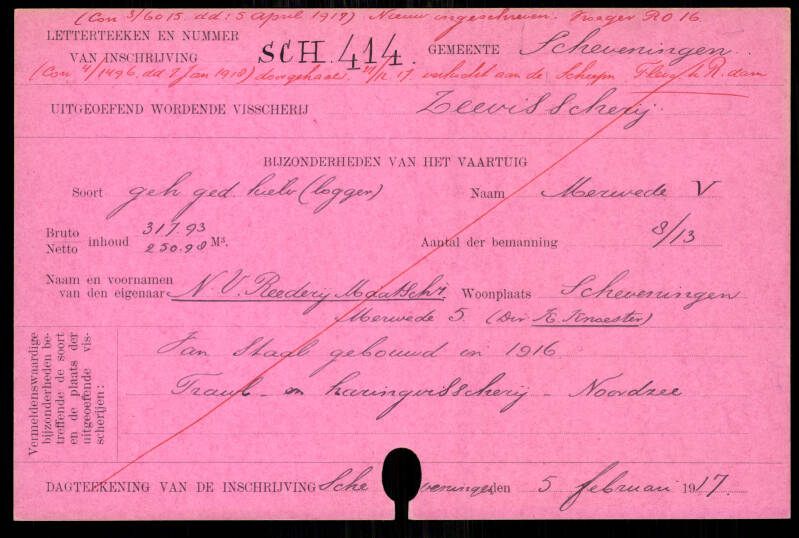 (Con 3/6015. dd: 5 April 1917) Nieuw ingeschreven. Vroeger RO 16.
LETTERTEEKEN EN NUMMER
VAN INSCHRIJVING SCH. 414. GEMEENTE Scheveningen.
(Con 4/1496. dd 7 Jan 1918) doorgehaald. 17/12.17. verkocht aan de Scheepm. R.dam
UITGEOEFEND WORDENDE VISSCHERIJ Zeevisscherij.
BIJZONDERHEDEN VAN HET VAARTUIG
Soort geh ged. kielv (logger) Naam Merwede V
Bruto 317.93
Netto inhoud 250.98 M³. Aantal der bemanning 8/13
Naam en voornamen
van den eigenaar N.V. Reederij Maatschij. Woonplaats Scheveningen
Merwede 5. (Dir K. Knoester)
Vermeldenswaardige
bijzonderheden be-
treffende de soort
en de plaats der
uitgeoefende vis-
scherijen:
Van Staal gebouwd in 1916
Trawl- en haringvisscherij - Noordzee
DAGTEEKENING VAN DE INSCHRIJVING Scheveningen den 5 februari 1917.